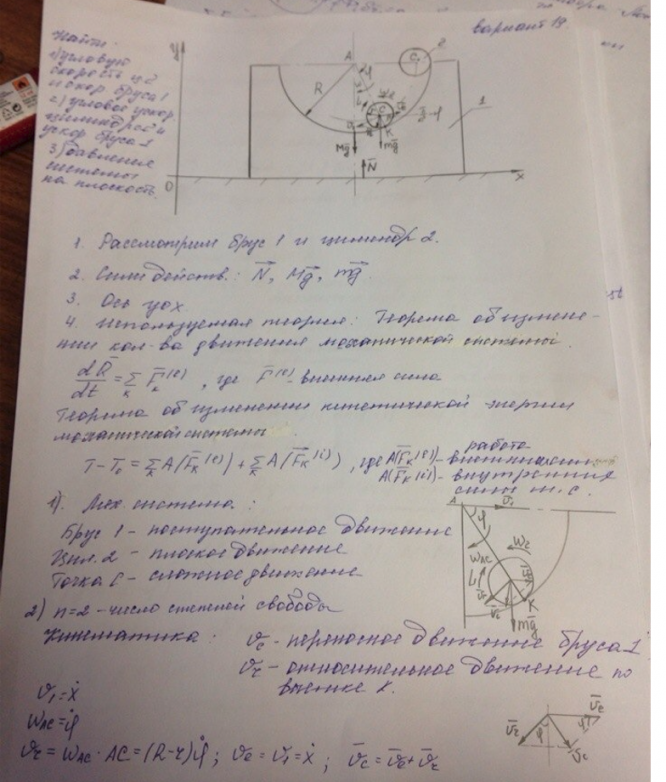 вариант 19.
Найти:
1) угловую
скорость ц. 2
и скор. бруса 1
2) угловое ускор.
цилиндра и
ускор бруса 1
3) давление
системы
на плоскость.
y
A
C
2
R
φ
1
K
Mg
mg
N
O
x
1. Рассмотрим брус 1 и цилиндр 2.
2. Силы действ.: N, Mg, mg.
3. Ось yox.
4. Используемая теория: Теорема об измене-
нии кол-ва движения механической системы.
dQ/dt = Σ F̄ₖ⁽ᵉ⁾, где F̄⁽ᵉ⁾ - внешняя сила
Теорема об изменении кинетической энергии
механической системы
T - T₀ = Σ A(F̄ₖ⁽ᵉ⁾) + Σ A(F̄ₖ⁽ⁱ⁾), где A(F̄ₖ⁽ᵉ⁾) - работа внешних
A(F̄ₖ⁽ⁱ⁾) - внутренних
сил м.с.
1). Мех. система:
Брус 1 - поступательное движение
Цил. 2 - плоское движение
Точка C - сложное движение
A
φ
v₁
ω_AC
ω₂
K
mg
2) n=2 - число степеней свободы
Кинематика:
vₑ - переносное движение бруса 1
vᵣ - относительное движение по
v₁ = ẋ
ω_AC = φ̇
vᵣ = ω_AC · AC = (R-r)φ̇; vₑ = v₁ = ẋ; v̄_C = v̄ₑ + v̄ᵣ
v̄ᵣ
φ
v̄ₑ
v̄_C